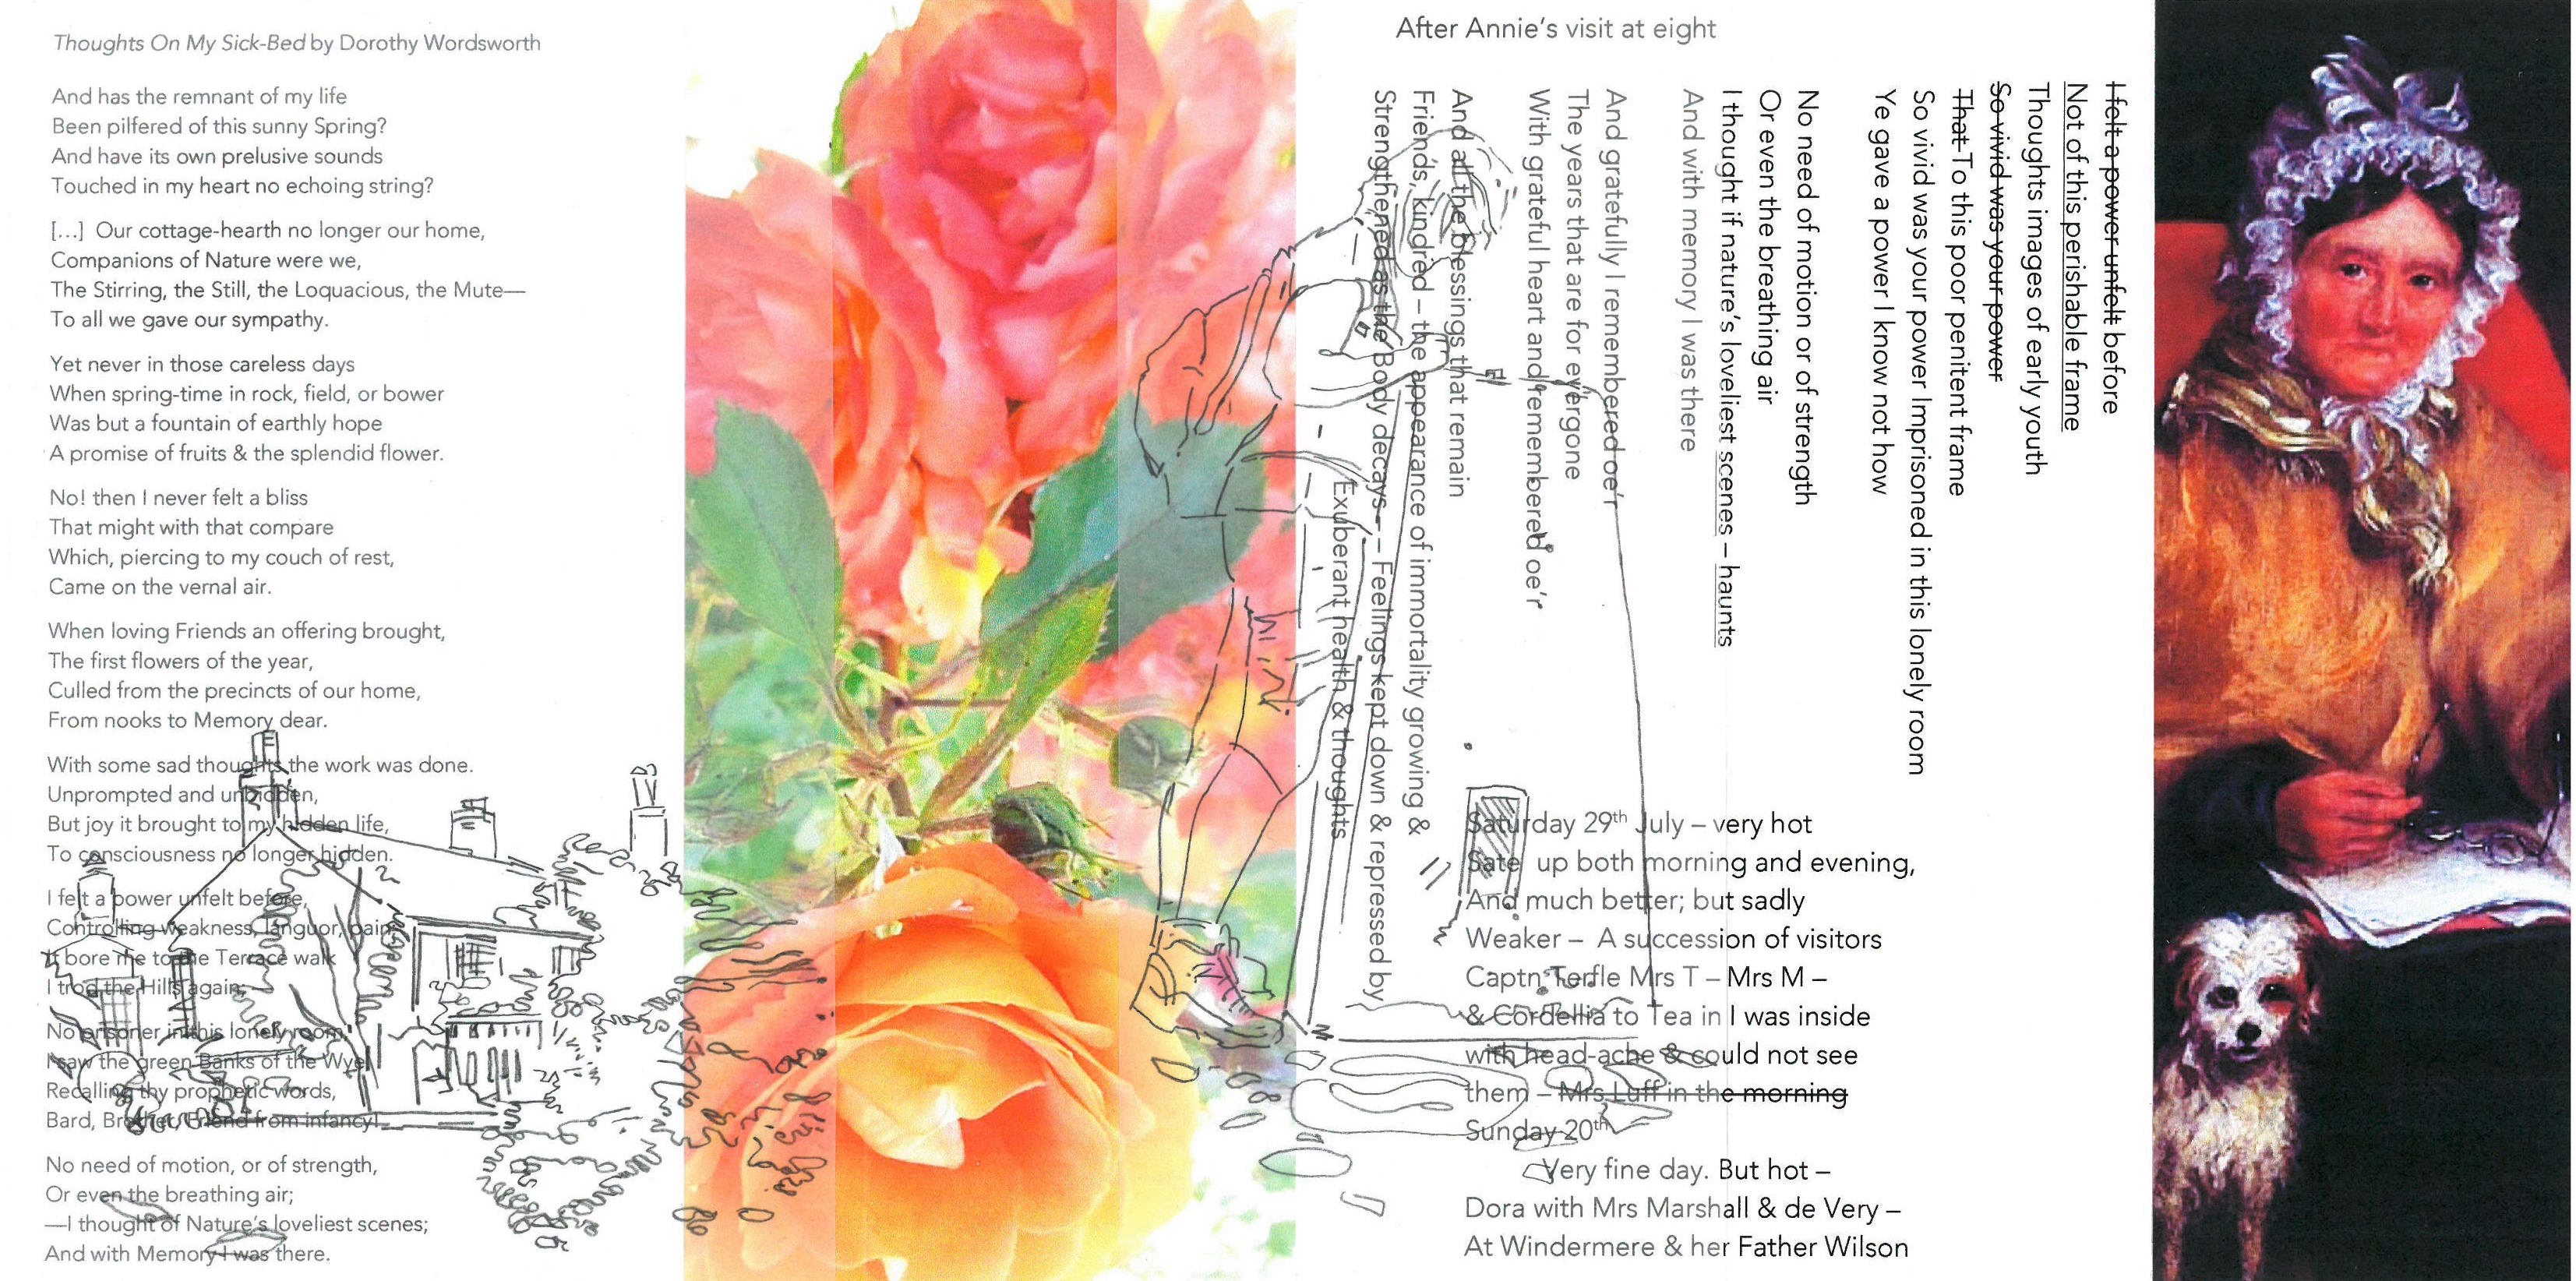 Thoughts On My Sick-Bed by Dorothy Wordsworth
And has the remnant of my life
Been pilfered of this sunny Spring?
And have its own prelusive sounds
Touched in my heart no echoing string?
[…] Our cottage-hearth no longer our home,
Companions of Nature were we,
The Stirring, the Still, the Loquacious, the Mute—
To all we gave our sympathy.
Yet never in those careless days
When spring-time in rock, field, or bower
Was but a fountain of earthly hope
A promise of fruits & the splendid flower.
No! then I never felt a bliss
That might with that compare
Which, piercing to my couch of rest,
Came on the vernal air.
When loving Friends an offering brought,
The first flowers of the year,
Culled from the precincts of our home,
From nooks to Memory dear.
With some sad thoughts the work was done.
Unprompted and unbidden,
But joy it brought to my hidden life,
To consciousness no longer hidden.
I felt a power unfelt before,
Controlling weakness, languor, pain;
It bore me to the Terrace walk
I trod the Hills again;
No prisoner in this lonely room,
I saw the green Banks of the Wye,
Recalling thy prophetic words,
Bard, Brother, Friend from infancy!
No need of motion, or of strength,
Or even the breathing air;
—I thought of Nature's loveliest scenes;
And with Memory I was there.
After Annie's visit at eight
I felt a power unfelt before
Not of this perishable frame
Thoughts images of early youth
So vivid was your power
That To this poor penitent frame
So vivid was your power Imprisoned in this lonely room
Ye gave a power I know not how
No need of motion or of strength
Or even the breathing air
I thought if nature's loveliest scenes – haunts
And with memory I was there
And gratefully I remembered oe'r
The years that are for evergone
With grateful heart and remembered oe'r
And all the blessings that remain
Friends, kindred – the appearance of immortality growing &
Strengthened as the Body decays – – Feelings kept down & repressed by
Exuberant health & thoughts
Saturday 29th July – very hot
Sate up both morning and evening,
And much better; but sadly
Weaker – A succession of visitors
Captn Mrs T – Mrs M –
& Cordellia to Tea in I was inside
with head-ache & could not see
them – Mrs Luff in the morning
Sunday 20th
Very fine day. But hot –
Dora with Mrs Marshall & de Very –
At Windermere & her Father Wilson